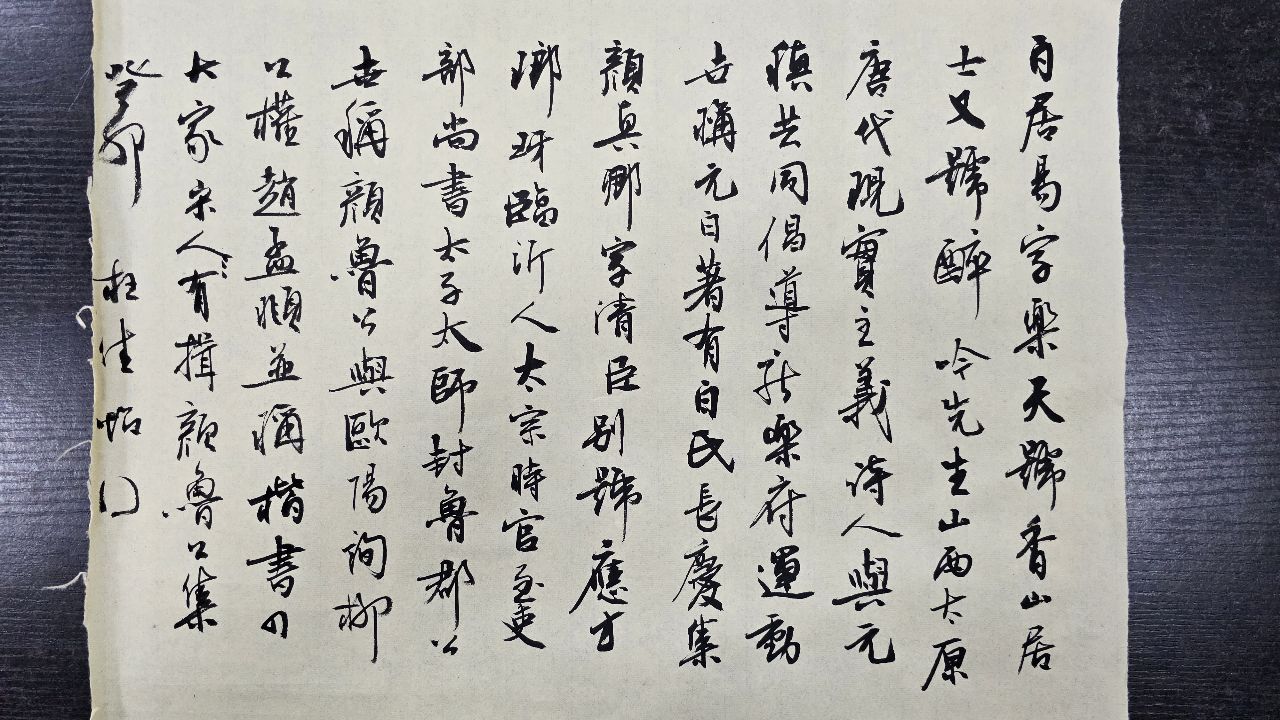 白居易字樂天號香山居
士又號醉吟先生山西太原
唐代現實主義詩人與元
稹共同倡導新樂府運動
世稱元白著有白氏長慶集
顏真卿字清臣別號應方
琅玡臨沂人太宗時官至吏
部尚書太子太師封魯郡公
世稱顏魯公與歐陽詢柳
公權趙孟頫並稱楷書四
大家宋人有揖顏魯公集
癸卯